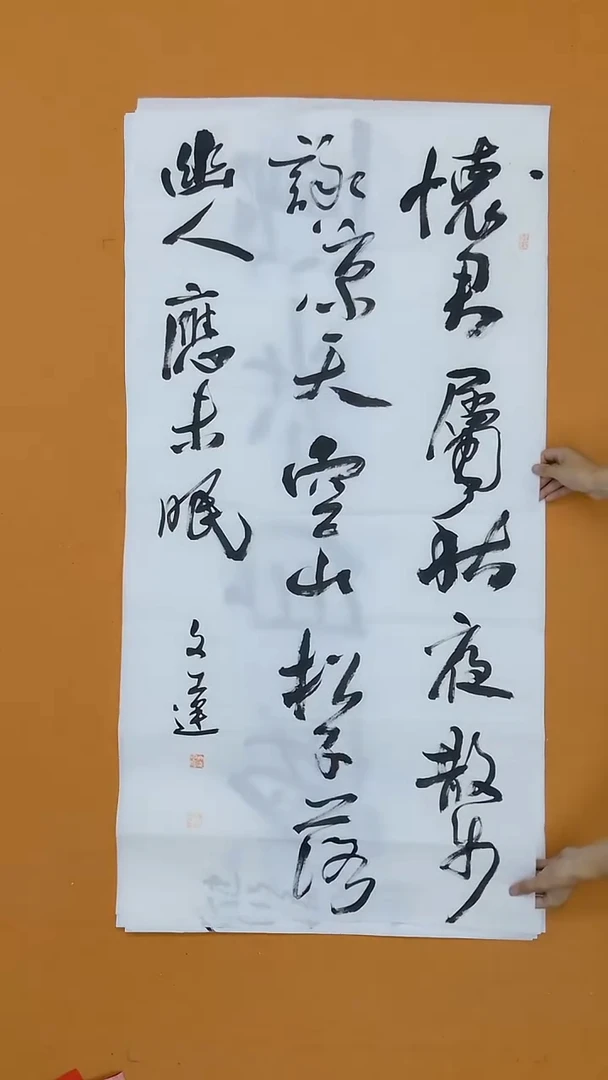 懷君屬秋夜散步
詠凉天空山松子落
幽人應未眠
文蓮